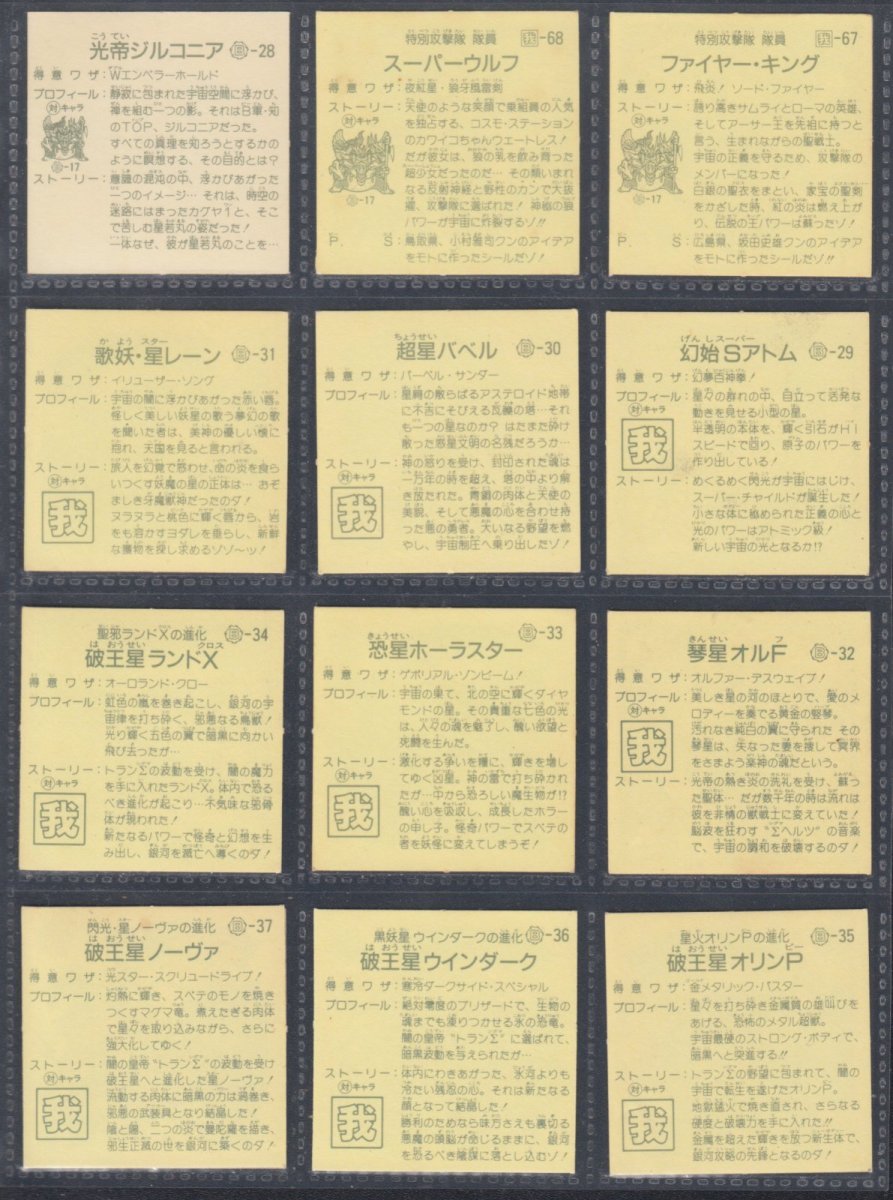 光帝ジルコニア -28
こうてい
得意ワザ:Wエンペラーホールド
プロフィール:静寂に包まれた宇宙空間に浮かび、
神を組む一つの影。それはB軍・知
のTOP、ジルコニアだった。
すべての真理を知ろうとするかの
ように瞑想する、その目的とは?
対キャラ
-17
ストーリー:意識の混沌の中、浮かびあがった
一つのイメージ…それは、時空の
迷路にはまったカグヤ1と、そこ
で苦しむ星若丸の姿だった!
一体なぜ、彼が星若丸のことを…
特別攻撃隊 隊員 我-68
スーパーウルフ
得意ワザ:夜紅星・狼牙風雷剣
ストーリー:天使のような笑顔で乗組員の人気
を独占する、コスモ・ステーション
のカワイコちゃんウェートレス!
だが彼女は、狼の乳を飲み育った
超少女だったのだ…その類いまれ
なる反射神経と野性のカンで大抜
擢、攻撃隊に選ばれた!神極の狼
パワーが宇宙に炸裂するゾ!!
対キャラ
-17
P.S:鳥取県、小村雅司クンのアイデア
をモトに作ったシールだゾ!
特別攻撃隊 隊員 我-67
ファイヤー・キング
得意ワザ:飛炎!ソード・ファイヤー
ストーリー:誇り高きサムライとローマの英雄、
そしてアーサー王を先祖に持つと
言う、生まれながらの聖戦士。
宇宙の正義を守るため、攻撃隊の
メンバーになった!
白銀の聖衣をまとい、家宝の聖剣
をかざした時、紅の炎は燃え上が
り、伝説の王パワーは蘇ったゾ!
対キャラ
-17
P.S:広島県、坂田史雄クンのアイデア
をモトに作ったシールだゾ!!
かよう スター
歌妖・星レーン -31
得意ワザ:イリューザー・ソング
プロフィール:宇宙の闇に浮かびあがった赤い唇。
怪しく美しい妖星の歌う夢幻の歌
を聞いた者は、美神の優しい懐に
抱れ、天国を見ると言われる。
ストーリー:旅人を幻覚で惑わせ、命の炎を食ら
いつくす妖魔の星の正体は…おぞ
ましき牙魔獣神だったのダ!
ヌラヌラと桃色に輝く唇から、岩
をも溶かすヨダレを垂らし、新鮮
な獲物を探し求めるゾゾ〜ッ!
対キャラ
我
ちょうせい
超星バベル -30
得意ワザ:バーベル・サンダー
プロフィール:星屑の散らばるアステロイド地帯
に不吉にそびえる瓦礫の塔…それ
も一つの星なのか?はたまた砕け
散った惑星文明の名残だろうか…
ストーリー:神の怒りを受け、封印された魂は
一万年の時を超え、塔の中より解
き放たれた。青銅の肉体と天使の
美貌、そして悪魔の心を合わせ持
った悪の勇者。大いなる野望を燃
やし、宇宙制圧へ乗り出したゾ!
対キャラ
我
げんしスーパー
幻始Sアトム -29
得意ワザ:幻夢百神拳!
プロフィール:星々の群れの中、目立って活発な
動きを見せる小型の星。
半透明の本体を、輝く引石がHi
スピードで回り、原子のパワーを
作り出している!
ストーリー:めくるめく閃光が宇宙にはじけ、
スーパー・チャイルドが誕生した!
小さな体に極められた正義の心と
光のパワーはアトミック級!
新しい宇宙の光となるか!?
対キャラ
我
聖邪ランドXの進化 -34
はおうせい クロス
破王星ランドX
得意ワザ:オーロランド・クロー
プロフィール:虹色の嵐を巻き起こし、銀河の宇
宙律を打ち砕く、邪悪なる鳥獣!
光り輝く五色の翼で暗黒に向かい
飛び去ったが…
ストーリー:トランΣの波動を受け、闇の魔力
を手に入れたランドX。体内で恐る
べき進化が起こり…不気味な邪骨
体が現われた!
新たなるパワーで怪奇と幻想を生
み出し、銀河を滅亡へ導くのダ!
対キャラ
我
きょうせい
恐星ホーラスター -33
得意ワザ:ゲボリアル・ゾンビーム!
プロフィール:宇宙の果て、北の空に輝くダイヤ
モンドの星。その貴重な七色の光
は、人々の魂を魅了し、醜い欲望と
死闘を生んだ。
ストーリー:激化する争いを糧に、輝きを増し
てゆく凶星。神の雷で打ち砕かれ
たが…中から恐ろしい魔生物が!?
醜い心を吸収し、成長したホラー
の申し子。怪奇パワーでスベテの
者を妖怪に変えてしまうぞ!
対キャラ
我
きんせい フ
琴星オルF -32
得意ワザ:オルファー・デスウェイブ!
プロフィール:美しき星の河のほとりで、愛のメ
ロディーを奏でる黄金の竪琴。
汚れなき純白の翼に守られた その
琴星は、失なった妻を捜して冥界
をさまよう楽神の魂だという。
ストーリー:光帝の熱き炎の洗礼を受け、蘇っ
た聖体…だが数千年の時は流れは
彼を非情の獣戦士に変えていた!
脳波を狂わす“Σヘルツ”の音楽
で、宇宙の調和を破壊するのダ!
対キャラ
我
閃光・星ノーヴァの進化 -37
はおうせい
破王星ノーヴァ
得意ワザ:光スター・スクリュードライブ!
プロフィール:灼熱に輝き、スベテのモノを焼き
つくすマグマ竜。煮えたぎる肉体
で星々を取り込みながら、さらに
強大化してゆく!
ストーリー:闇の皇帝“トランΣ”の波動を受け
破王星へと進化した星ノーヴァ!
流動する肉体に暗黒の力は渦巻き、
邪悪の武装具となり結晶した!
陰と陽、二つの炎で曼陀羅を描き、
邪生正滅の世を銀河に築くのダ!
対キャラ
我
黒妖星ウインダークの進化 -36
はおうせい
破王星ウインダーク
得意ワザ:寒冷ダークサイド・スペシャル
プロフィール:絶対零度のブリザードで、生物の
魂までも凍りつかせる氷の恐竜。
闇の皇帝“トランΣ”に選ばれて、
暗黒波動を与えられたが…
ストーリー:体内にわきあがった、氷河よりも
冷たい残忍の心。それは新たなる
顔となって結晶した!
勝利のためなら味方さえも裏切る
悪魔の頭脳が命じるままに、銀河
を恐るべき陰謀に落とし込むゾ!
対キャラ
我
星火オリンPの進化 -35
はおうせい ピー
破王星オリンP
得意ワザ:金メタリック・バスター
プロフィール:星々を打ち砕き金属質の雄叫びを
あげる、恐怖のメタル超獣。
宇宙最硬のストロング・ボディで、
暗黒へと突進する!!
ストーリー:トランΣの野望に包まれて、闇の
宇宙で転生を遂げたオリンP。
地獄猛火で焼き直され、さらなる
硬度と破壊力を手に入れた!!
金属を超えた輝きを放つ新生体で、
銀河攻略の先鋒となるのダ!
対キャラ
我